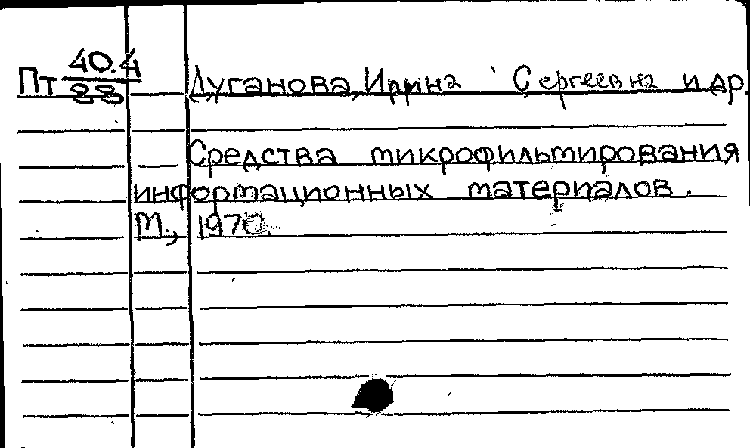 Пт 40.4/88 Дуганова, Ирина Сергеевна и др.
Средства микрофильмирования
информационных материалов.
М., 1970.